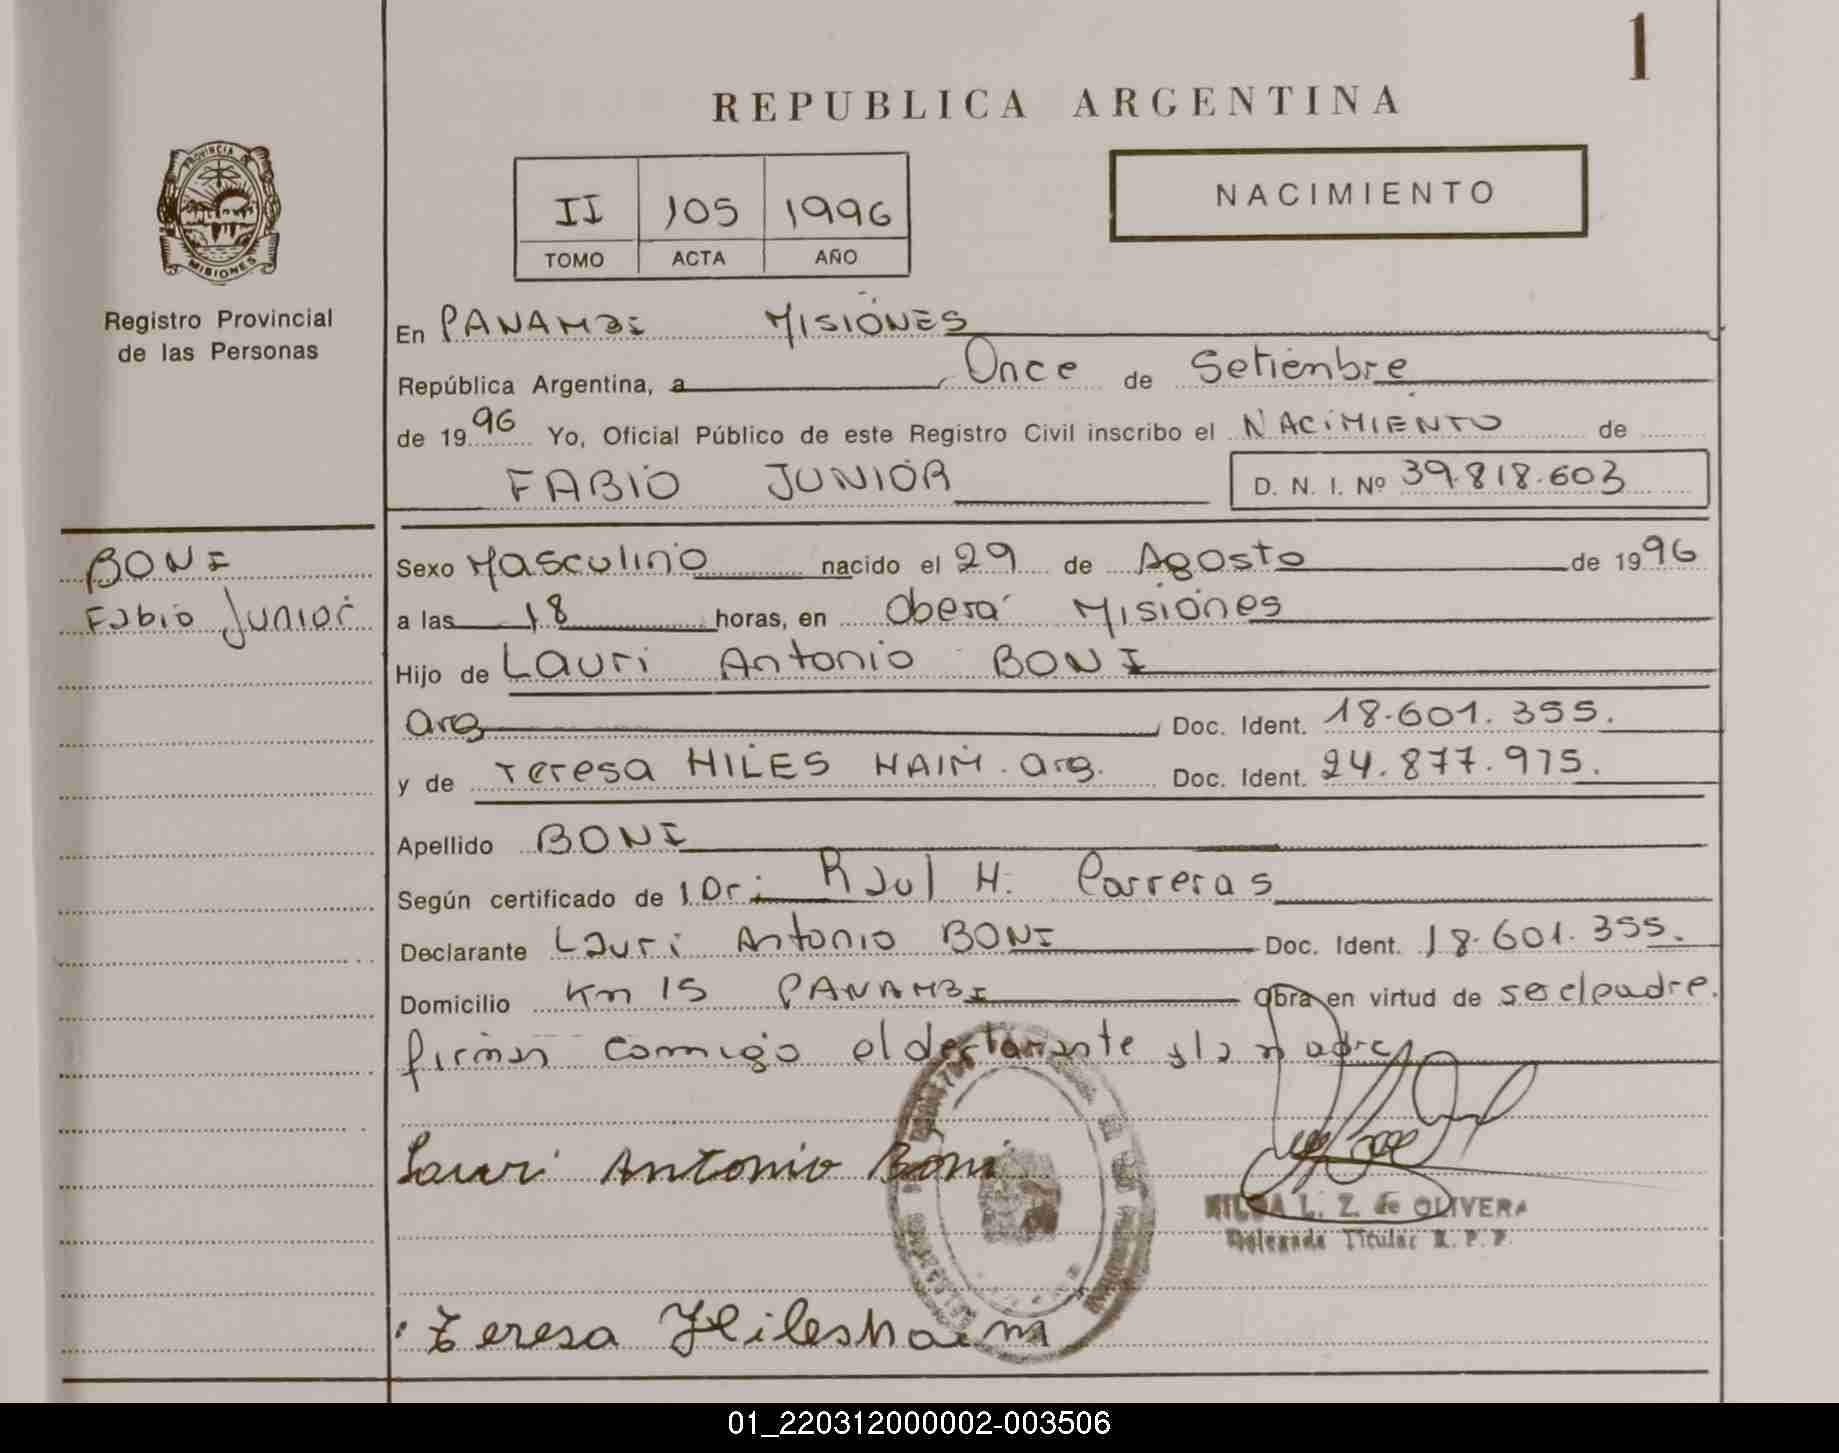 1
REPUBLICA ARGENTINA
PROVINCIA DE
MISIONES
Registro Provincial
de las Personas
II 105 1996
TOMO ACTA AÑO
NACIMIENTO
En PANAMBI MISIONES
República Argentina, a Once de Setiembre
de 1996 Yo, Oficial Público de este Registro Civil inscribo el NACIMIENTO de
FABIO JUNIOR D. N. I. Nº 39.818.603
BONI
Fabio Junior
Sexo Masculino nacido el 29 de Agosto de 1996
a las 18 horas, en Oberá Misiones
Hijo de Lauri Antonio BONI
arg Doc. Ident. 18.601.355.
y de Teresa HILES HAIM. arg. Doc. Ident. 24.877.975.
Apellido BONI
Según certificado de l Dr: Raul H. Carreras
Declarante Lauri Antonio BONI Doc. Ident. 18.601.355.
Domicilio Km 15 PANAMBI Obra en virtud de ser el padre.
firman conmigo el declarante y la madre
Lauri Antonio Boni
HILDA L. Z. de OLIVERA
Delegada Titular R. P. P.
Teresa Hileshaim
01_220312000002-003506